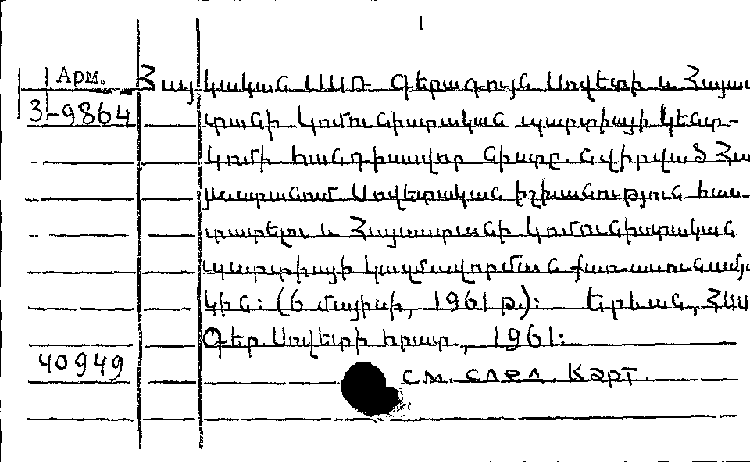 Арм.
Հայկական ՍՍՌ Գերագույն Սովետի և Հայաս
3-9864
տանի Կոմունիստական պարտիայի կենտ-
կոմի հանդիսավոր նիստը նվիրված Հա
յաստանում Սովետական իշխանություն հաս-
տատելու և Հայաստանի Կոմունիստական
պարտիայի կազմավորման քառասունամյա
կին: (6 մայիսի, 1961 թ.): Երևան, ՀՍՍ
Գեր. Սովետի հրատ., 1961:
40949
см. след. карт.